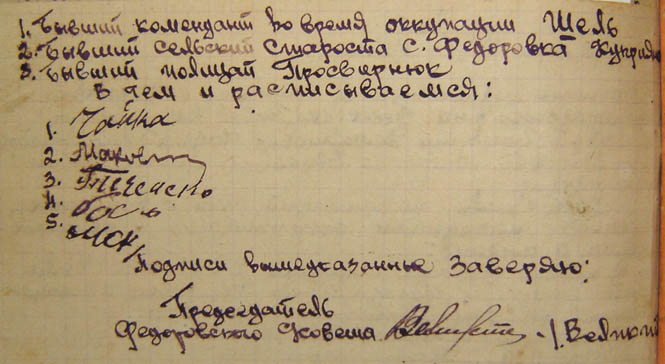 1. Бывший комендант во время оккупации Шель
2. Бывший сельский староста с. Федоровка
3. Бывший полицай Просвирнюк
В чем и расписываемся:
1. Чайка
2.
3.
4.
5.
Подписи вышеуказанные заверяю:
Председатель
Федоровского /. Великий